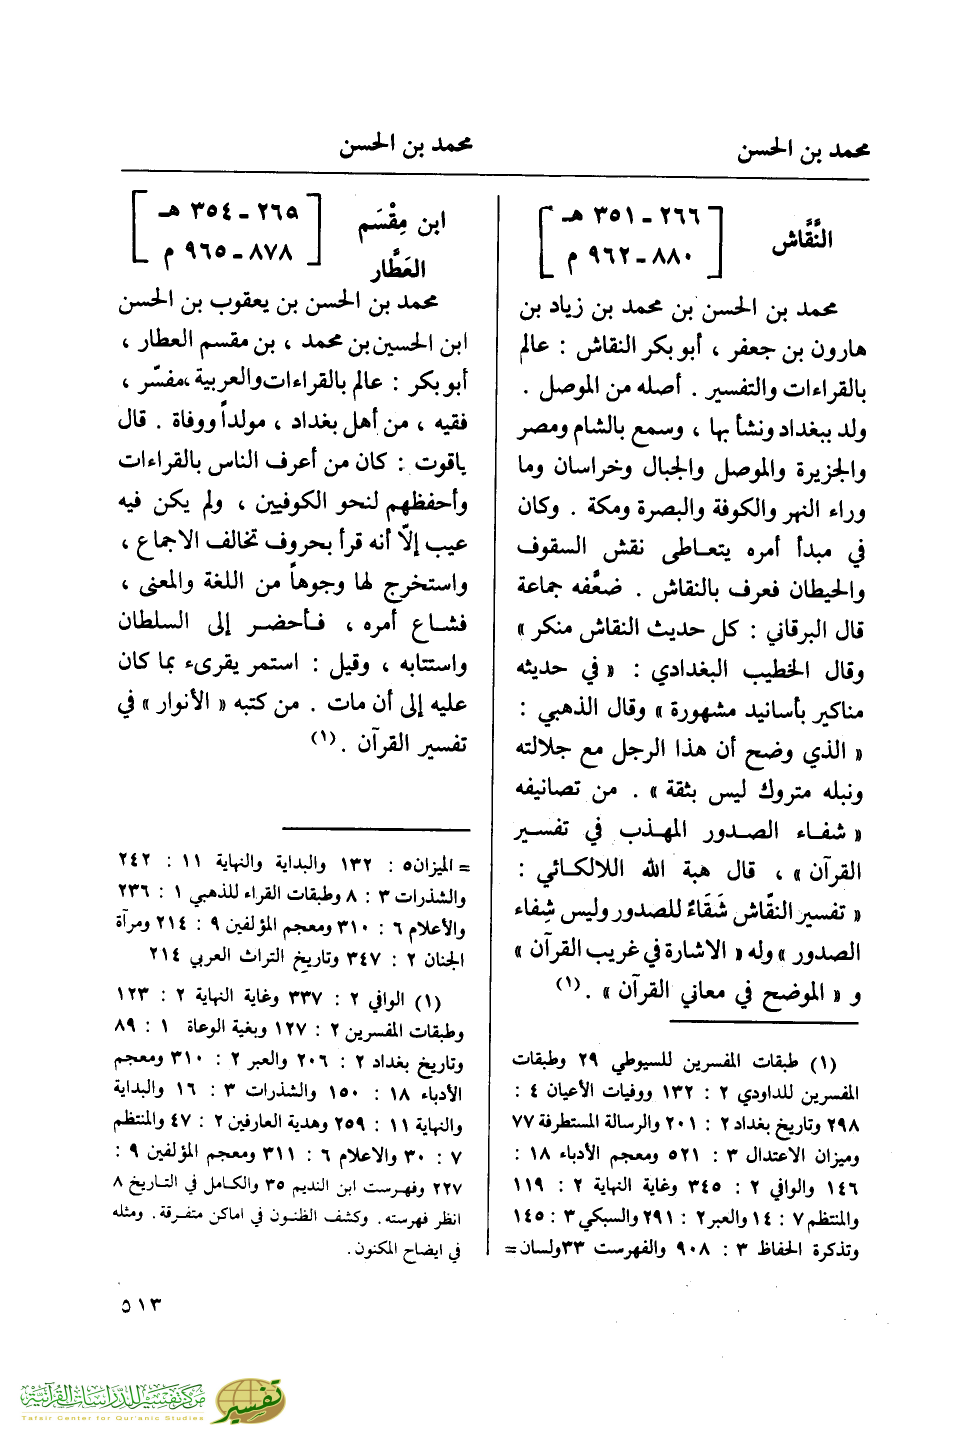 محمد بن الحسن
محمد بن الحسن
النَّقَّاش
[ ٢٦٦ ـ ٣٥١ هـ
٨٨٠ ـ ٩٦٢ م ]
محمد بن الحسن بن محمد بن زياد بن
هارون بن جعفر ، أبو بكر النقاش : عالم
بالقراءات والتفسير . أصله من الموصل .
ولد ببغداد ونشأ بها ، وسمع بالشام ومصر
والجزيرة والموصل والجبال وخراسان وما
وراء النهر والكوفة والبصرة ومكة . وكان
في مبدأ أمره يتعاطى نقش السقوف
والحيطان فعرف بالنقاش . ضعَّفه جماعة
قال البرقاني : كل حديث النقاش منكر »
وقال الخطيب البغدادي : « في حديثه
مناكير بأسانيد مشهورة » وقال الذهبي :
« الذي وضح أن هذا الرجل مع جلالته
ونبله متروك ليس بثقة » . من تصانيفه
« شفاء الصدور المهذب في تفسير
القرآن » ، قال هبة الله اللالكائي :
« تفسير النقّاش شَقَاءٌ للصدور وليس شِفاء
الصدور » وله « الاشارة في غريب القرآن »
و « الموضح في معاني القرآن » . (١)
(١) طبقات المفسرين للسيوطي ٢٩ وطبقات
المفسرين للداودي ٢ : ١٣٢ ووفيات الأعيان ٤ :
٢٩٨ وتاريخ بغداد ٢ : ٢٠١ والرسالة المستطرفة ٧٧
وميزان الاعتدال ٣ : ٥٢١ ومعجم الأدباء ١٨ :
١٤٦ والوافي ٢ : ٣٤٥ وغاية النهاية ٢ : ١١٩
والمنتظم ٧ : ١٤ والعبر ٢ : ٢٩١ والسبكي ٣ : ١٤٥
وتذكرة الحفاظ ٣ : ٩٠٨ والفهرست ٣٣ ولسان =
ابن مِقْسَم
العَطَّار
[ ٢٦٥ ـ ٣٥٤ هـ
٨٧٨ ـ ٩٦٥ م ]
محمد بن الحسن بن يعقوب بن الحسن
ابن الحسين بن محمد ، بن مقسم العطار ،
أبو بكر : عالم بالقراءات والعربية ، مفسّر ،
فقيه ، من أهل بغداد ، مولداً ووفاة . قال
ياقوت : كان من أعرف الناس بالقراءات
وأحفظهم لنحو الكوفيين ، ولم يكن فيه
عيب إلّا أنه قرأ بحروف تخالف الاجماع ،
واستخرج لها وجوهاً من اللغة والمعنى ،
فشاع أمره ، فأحضر إلى السلطان
واستتابه ، وقيل : استمر يقرىء بما كان
عليه إلى أن مات . من كتبه « الأنوار » في
تفسير القرآن . (١)
= الميزان ٥ : ١٣٢ والبداية والنهاية ١١ : ٢٤٢
والشذرات ٣ : ٨ وطبقات القراء للذهبي ١ : ٢٣٦
والأعلام ٦ : ٣١٠ ومعجم المؤلفين ٩ : ٢١٤ ومرآة
الجنان ٢ : ٣٤٧ وتاريخ التراث العربي ٢١٤
(١) الوافي ٢ : ٣٣٧ وغاية النهاية ٢ : ١٢٣
وطبقات المفسرين ٢ : ١٢٧ وبغية الوعاة ١ : ٨٩
وتاريخ بغداد ٢ : ٢٠٦ والعبر ٢ : ٣١٠ ومعجم
الأدباء ١٨ : ١٥٠ والشذرات ٣ : ١٦ والبداية
والنهاية ١١ : ٢٥٩ وهدية العارفين ٢ : ٤٧ والمنتظم
٧ : ٣٠ والاعلام ٦ : ٣١١ ومعجم المؤلفين ٩ :
٢٢٧ وفهرست ابن النديم ٣٥ والكامل في التاريخ ٨
انظر فهرسته . وكشف الظنون في اماكن متفرقة . ومثله
في ايضاح المكنون .
٥١٣
مركز تفسير للدراسات القرآنية
Tafsir Center for Qur'anic Studies
تفسير